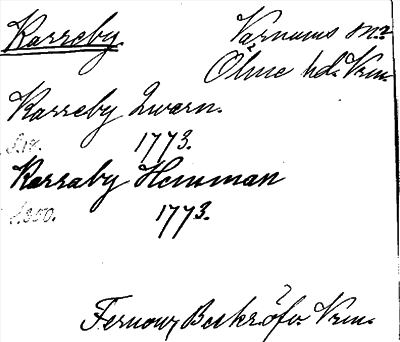 Karreby.
Varnums sn
Ölme hd. Vrm.
Karreby Qvarn.
s. 18. 1773.
Karraby Hemman
s. 350. 1773.
Fernow, Beskr. öfv. Vrm.